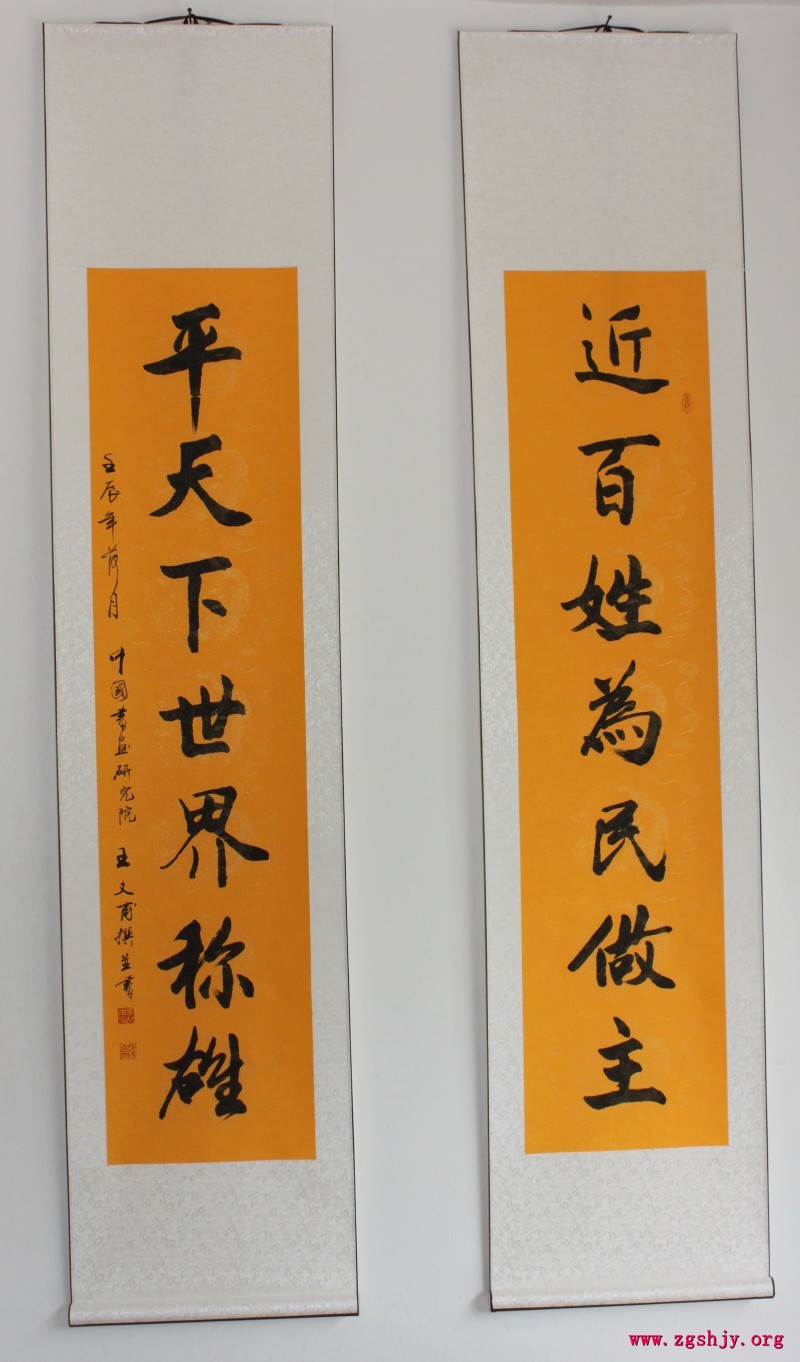 近百姓為民做主
平天下世界称雄
壬辰年荷月 中國書画研究院 王文甫撰並書
www.zgshjy.org